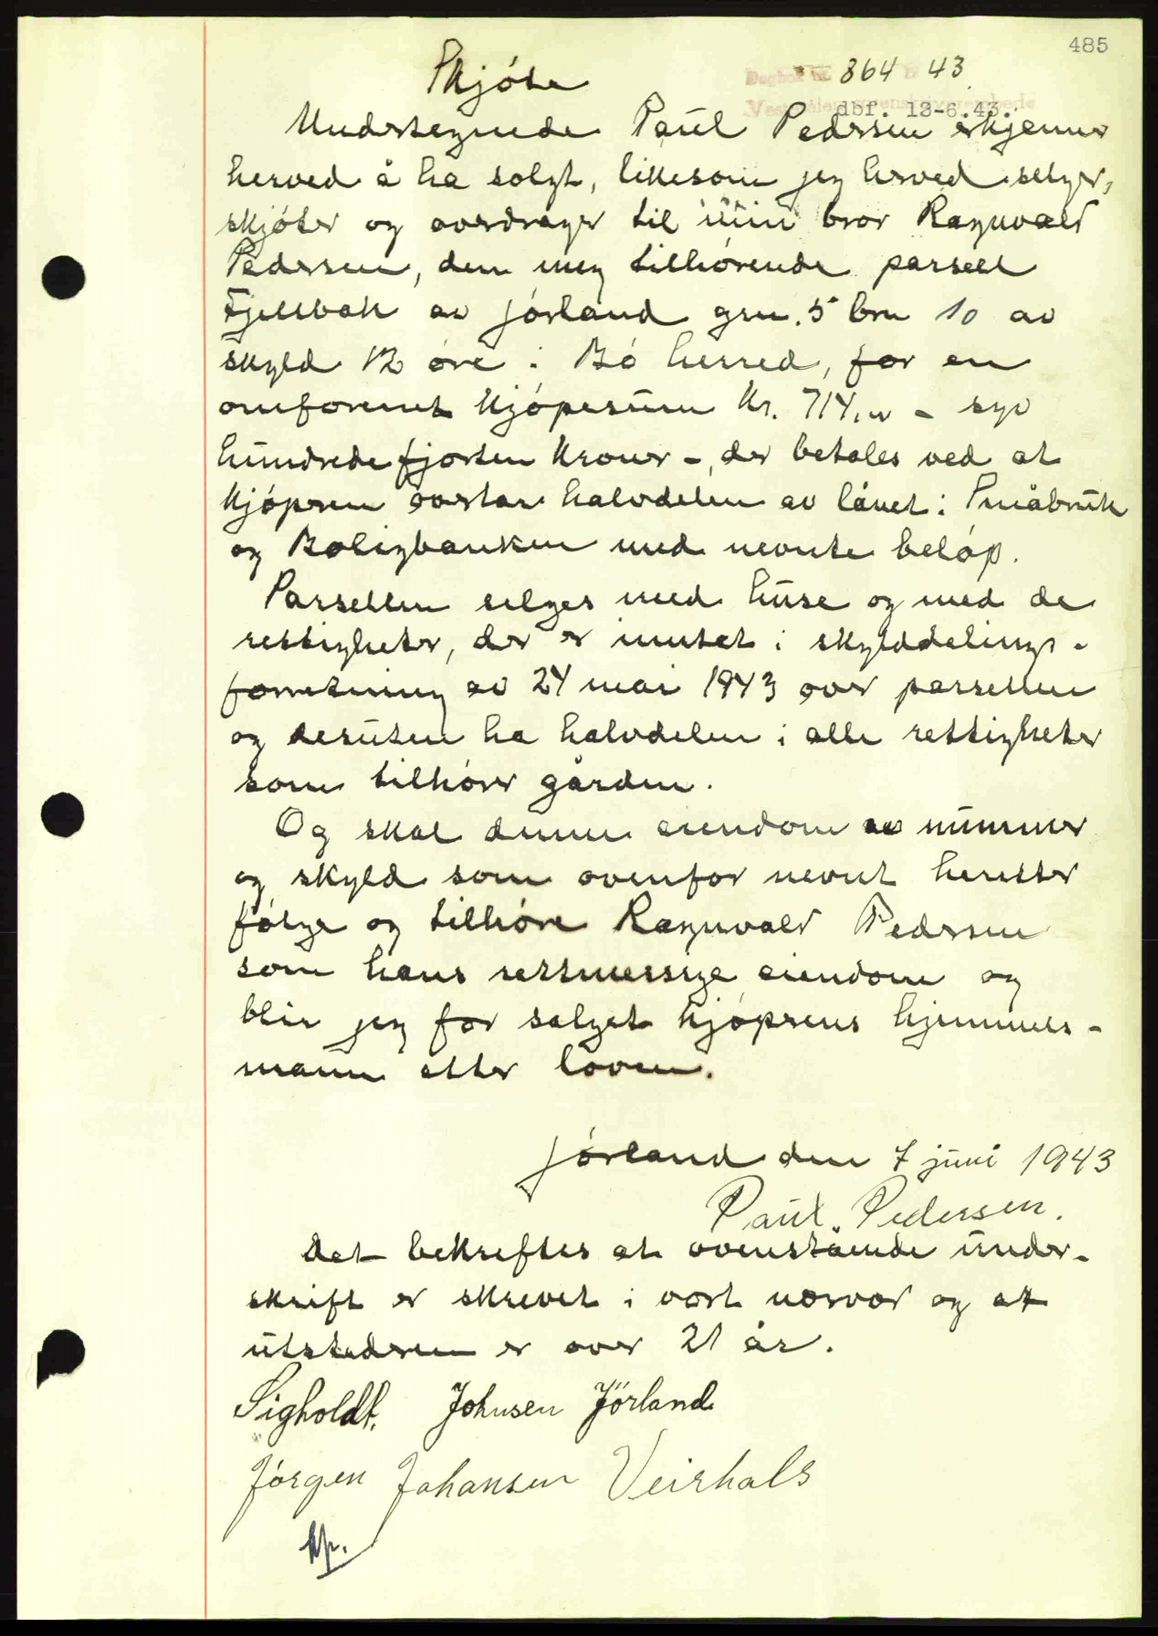 485
Skjöte
Dagbok nr. 864 19 43
Vesterålen sorenskriverembede
dbf. 13-6.43.
Undertegnede Paul Pedersen erkjenner
herved å ha solgt, likesom jeg herved selger,
skjöter og overdrager til min bror Ragnvald
Pedersen, den meg tilhörende parsell
Fjellbak av Jörland gnr. 5 brn 10 av
skyld 12 öre i Bö herred, for en
omforenet kjöpesum kr. 714,00 - syv
hundrede fjorten kroner -, der betales ved at
kjöperen overtar halvdelen av lånet i Småbruk
og Boligbanken med nevnte belöp.
Parsellen selges med huse og med de
rettigheter, der er inntat i skylddelings-
forretning av 24 mai 1943 over parsellen
og desuten ha halvdelen i alle rettigheter
som tilhörer gården.
Og skal denne eiendom av nummer
og skyld som ovenfor nevnt herefter
fölge og tilhöre Ragnvald Pedersen
som hans rettmessige eiendom og
blir jeg for salget kjöperens hjemmels-
mann etter loven.
Jörland den 7 juni 1943
Paul. Pedersen.
Det bekreftes at ovenstående under-
skrift er skrevet i vort nærvær og at
utstederen er over 21 år.
Sigholdt. Johnsen Jörland
Jörgen Johansen Veirhals